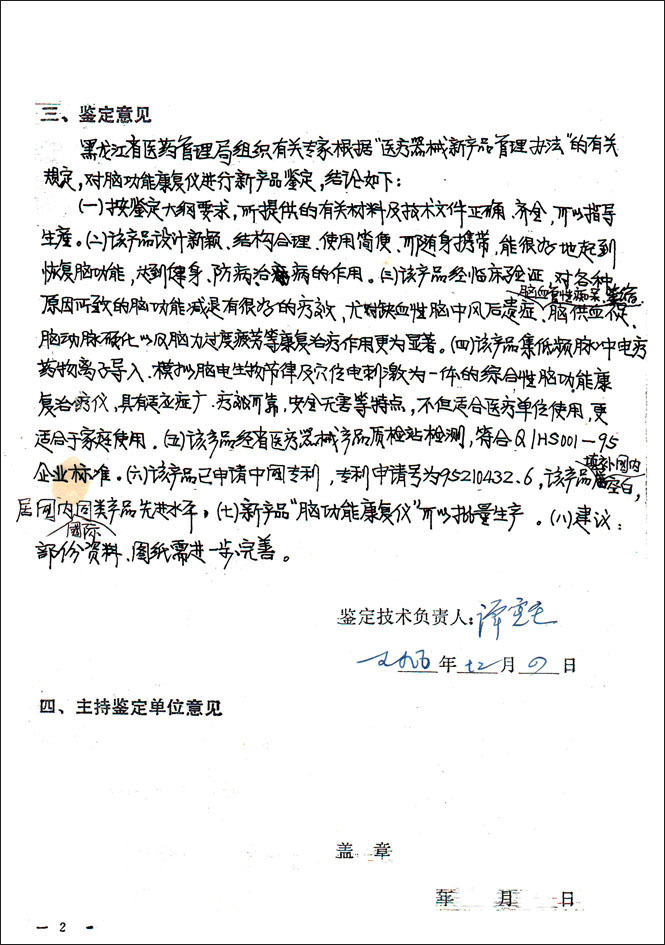 三、鉴定意见
黑龙江省医药管理局组织有关专家根据“医疗器械新产品管理办法”的有关
规定,对脑功能康复仪进行新产品鉴定,结论如下:
(一)按鉴定大纲要求,所提供的有关材料及技术文件正确、齐全,可以指导
生产。(二)该产品设计新颖、结构合理、使用简便、可随身携带,能很好地起到
恢复脑功能,达到健身、防病治病的作用。(三)该产品经临床验证,对各种
脑血管性痴呆、
原因所致的脑功能减退有很好的疗效,尤对缺血性脑中风后遗症、脑供血不足、
脑动脉硬化以及脑力过度疲劳等康复治疗作用更为显著。(四)该产品集低频脉冲电疗
药物离子导入、模拟脑电生物节律及穴位电刺激为一体的综合性脑功能康
复治疗仪,具有适应症广、疗效可靠,安全无害等特点,不但适合医疗单位使用,更
适合于家庭使用。(五)该产品经省医疗器械产品质检站检测,符合Q/HS001-95
企业标准。(六)该产品已申请中国专利,专利申请号为95210432.6,该产品
填补国内
空白,
居国内同类产品先进水平。(七)新产品“脑功能康复仪”可以批量生产。(八)建议:
國际
部份资料、图纸需进一步完善。
鉴定技术负责人:
年 十二 月 日
四、主持鉴定单位意见
盖 章
年 月 日
- 2 -